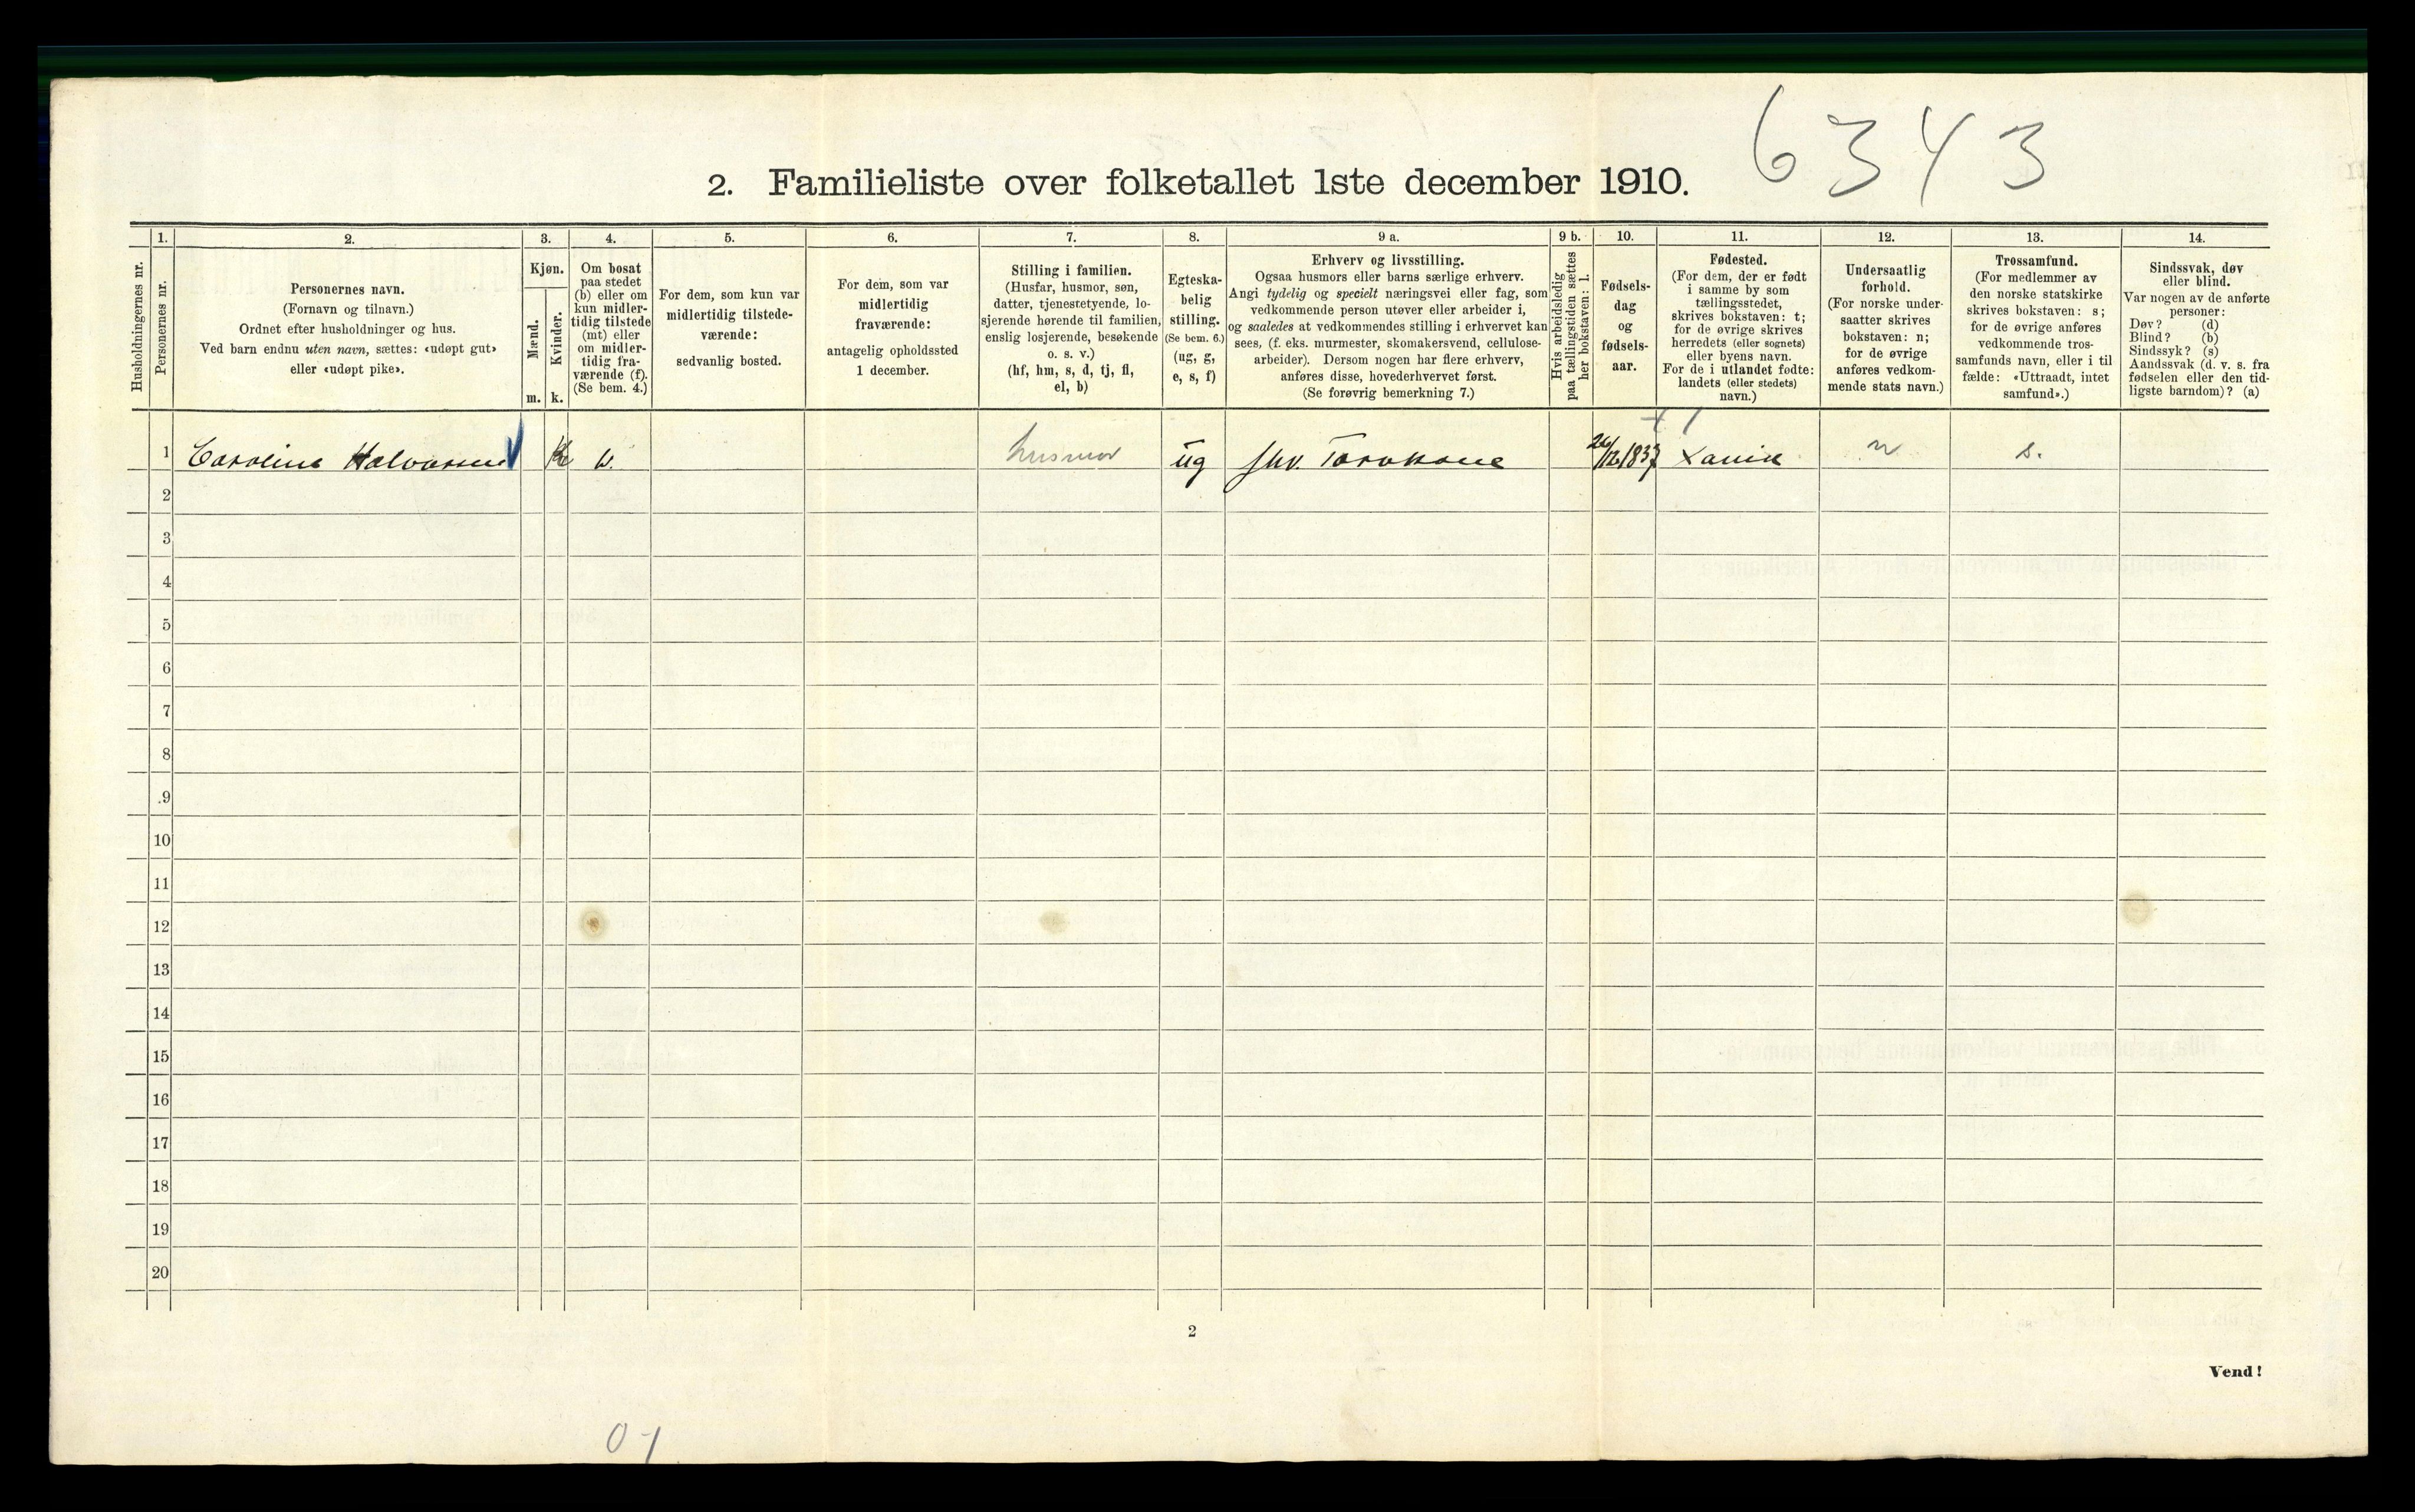 6343
2. Familieliste over folketallet 1ste december 1910.
Husholdningernes nr.
1.
Personernes nr.
2.
Personernes navn.
(Fornavn og tilnavn.)
Ordnet efter husholdninger og hus.
Ved barn endnu uten navn, sættes: «udøpt gut»
eller «udøpt pike».
3.
Kjøn.
Mænd.
Kvinder.
m. k.
4.
Om bosat
paa stedet
(b) eller om
kun midler-
tidig tilstede
(mt) eller
om midler-
tidig fra-
værende (f).
(Se bem. 4.)
5.
For dem, som kun var
midlertidig tilstede-
værende:
sedvanlig bosted.
6.
For dem, som var
midlertidig
fraværende:
antagelig opholdssted
1 december.
7.
Stilling i familien.
(Husfar, husmor, søn,
datter, tjenestetyende, lo-
sjerende hørende til familien,
enslig losjerende, besøkende
o. s. v.)
(hf, hm, s, d, tj, fl,
el, b)
8.
Egteska-
belig
stilling.
(Se bem. 6.)
(ug, g,
e, s, f)
9 a.
Erhverv og livsstilling.
Ogsaa husmors eller barns særlige erhverv.
Angi tydelig og specielt næringsvei eller fag, som
vedkommende person utøver eller arbeider i,
og saaledes at vedkommendes stilling i erhvervet kan
sees, (f. eks. murmester, skomakersvend, cellulose-
arbeider). Dersom nogen har flere erhverv,
anføres disse, hovederhvervet først.
(Se forøvrig bemerkning 7.)
9 b.
Hvis arbeidsledig
paa tællingstiden sættes
her bokstaven: l.
10.
Fødsels-
dag
og
fødsels-
aar.
11.
Fødested.
(For dem, der er født
i samme by som
tællingsstedet,
skrives bokstaven: t;
for de øvrige skrives
herredets (eller sognets)
eller byens navn.
For de i utlandet fødte:
landets (eller stedets)
navn.)
12.
Undersaatlig
forhold.
(For norske under-
saatter skrives
bokstaven: n;
for de øvrige
anføres vedkom-
mende stats navn.)
13.
Trossamfund.
(For medlemmer av
den norske statskirke
skrives bokstaven: s;
for de øvrige anføres
vedkommende tros-
samfunds navn, eller i til
fælde: «Uttraadt, intet
samfund».)
14.
Sindssvak, døv
eller blind.
Var nogen av de anførte
personer:
Døv? (d)
Blind? (b)
Sindssyk? (s)
Aandssvak (d. v. s. fra
fødselen eller den tid-
ligste barndom)? (a)
1 Caroline Halvorsen k b. husmor ug fhv. Torvkone 26/12 1837 n s.
2
3
4
5
6
7
8
9
10
11
12
13
14
15
16
17
18
19
20
2
Vend!
01